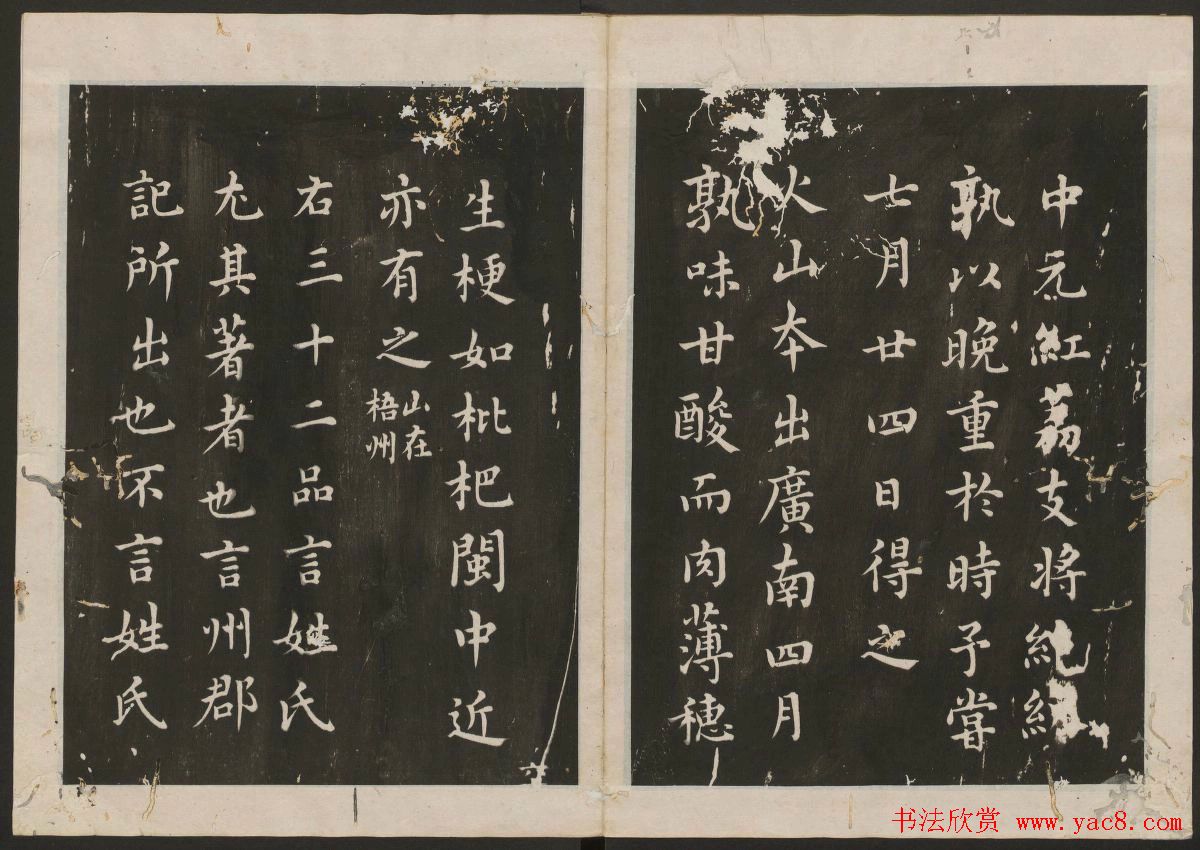 中元紅荔支將絕纔
孰以晚重於時予嘗
七月廿四日得之
火山本出廣南四月
孰味甘酸而肉薄穗
生梗如枇杷閩中近
亦有之山在
梧州
右三十二品言姓氏
尤其著者也言州郡
記所出也不言姓氏
书法欣赏 www.yac8.com